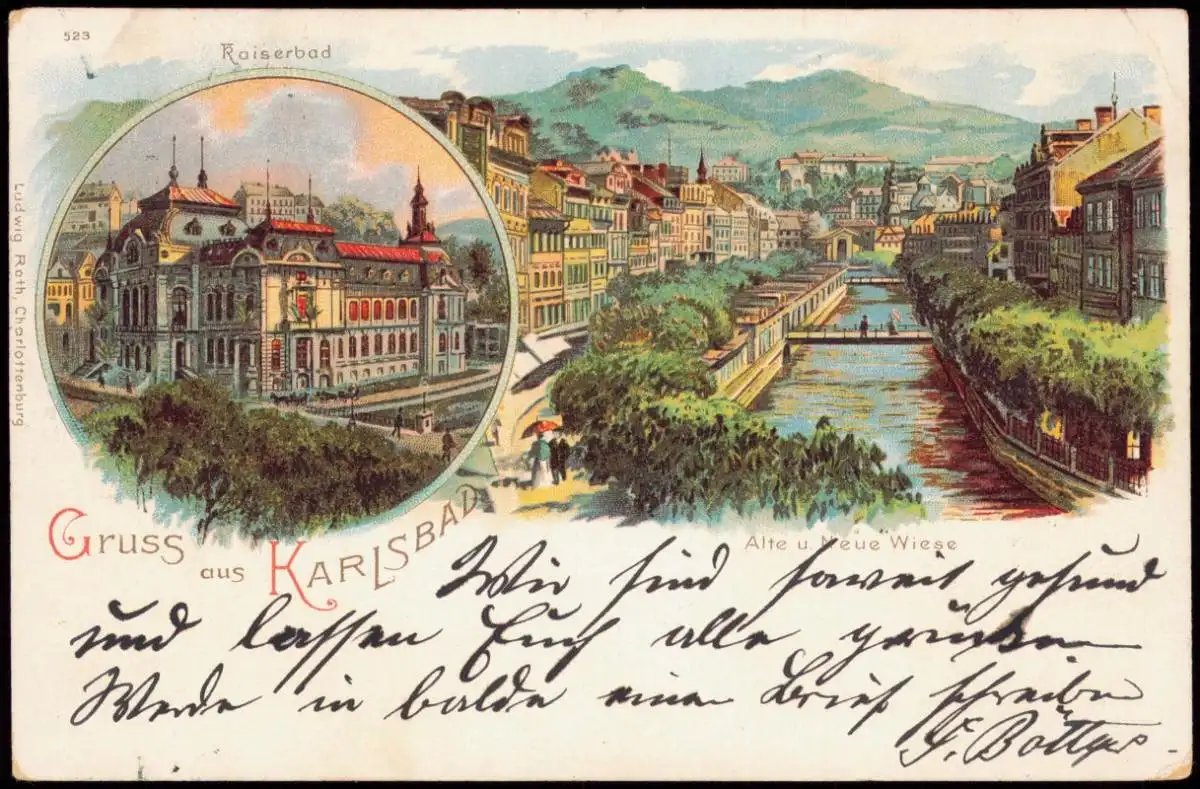 523
Kaiserbad
Ludwig Roth, Charlottenburg
Gruss aus KARLSBAD
Alte u. Neue Wiese
Wir sind soweit gesund
und lassen Euch alle grüßen
Werde in balde einen Brief schreiben
F. Böttger.